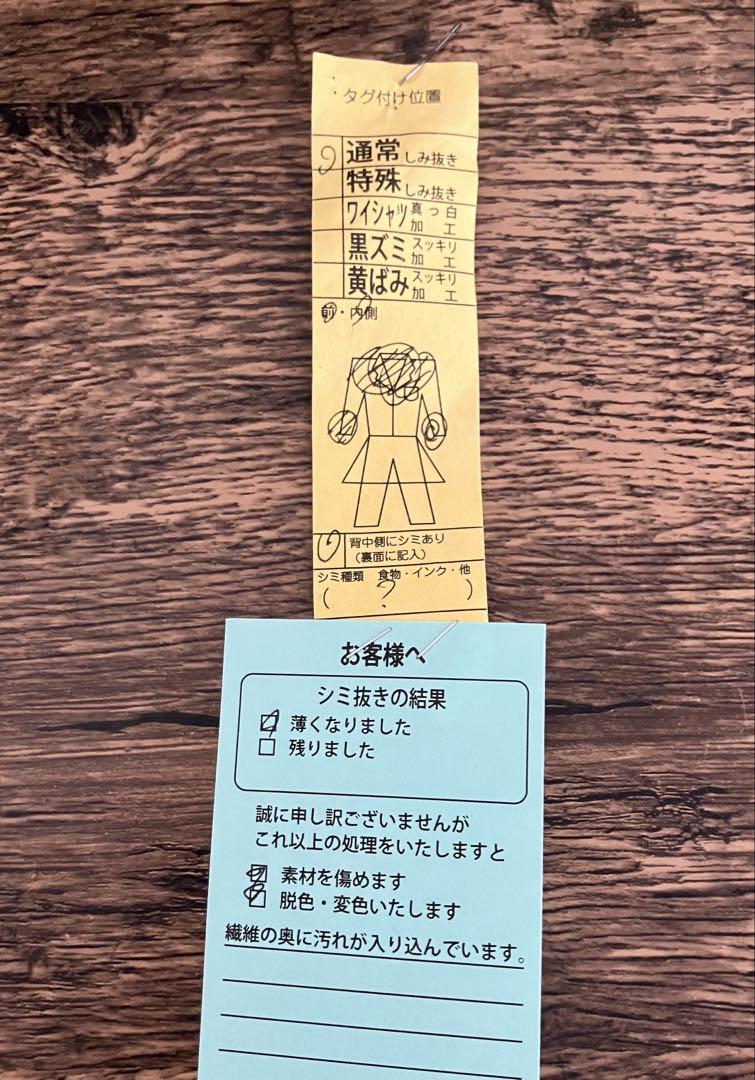 タグ付け位置
通常 しみ抜き
特殊 しみ抜き
ワイシャツ 真っ白加工
黒ズミ スッキリ加工
黄ばみ スッキリ加工
前・内側
背中側にシミあり
(裏面に記入)
シミ種類 食物・インク・他
( ? )
お客様へ
シミ抜きの結果
薄くなりました
残りました
誠に申し訳ございませんが
これ以上の処理をいたしますと
素材を傷めます
脱色・変色いたします
繊維の奥に汚れが入り込んでいます。